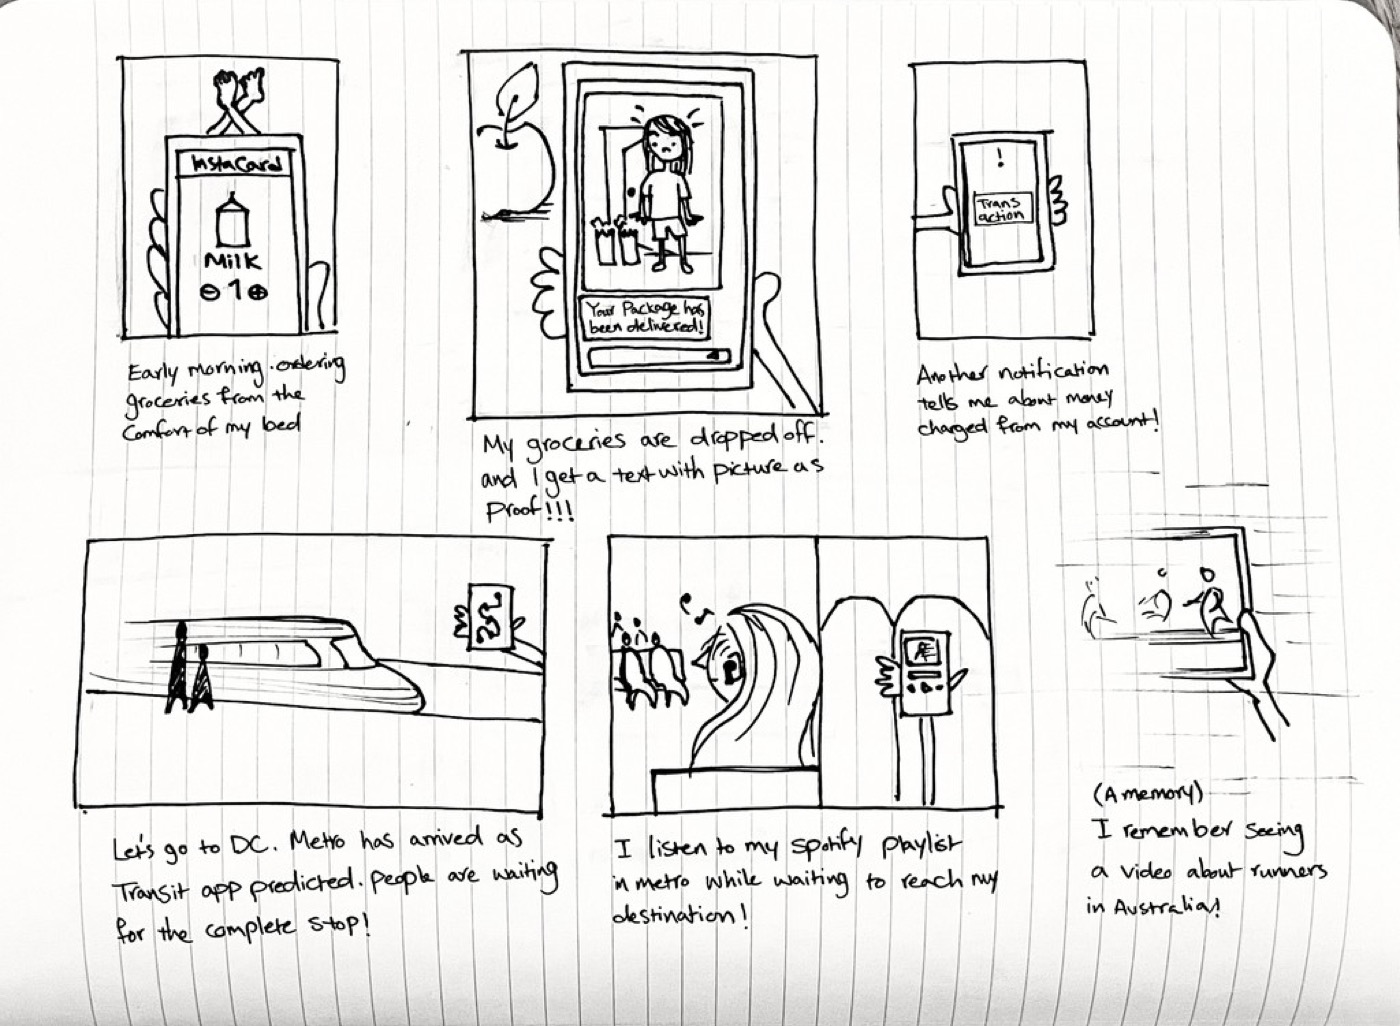 InstaCard
Milk
⊖ 1 ⊕
Early morning ordering
groceries from the
Comfort of my bed
Your Package has
been delivered!
My groceries are dropped off.
and I get a text with picture as
Proof!!!
!
Trans
action
Another notification
tells me about money
charged from my account!
Let's go to DC. Metro has arrived as
Transit app predicted. people are waiting
for the complete stop!
I listen to my spotify playlist
in metro while waiting to reach my
destination!
(A memory)
I remember seeing
a video about runners
in Australia!